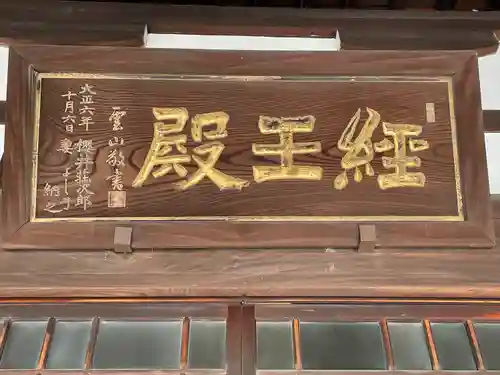 經王殿
雲山敬書
大正六年
十月六日
櫻井荘次郎
妻よし子
納之